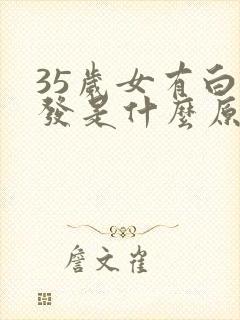 35歲女有白
發是什麼原
詹文雀